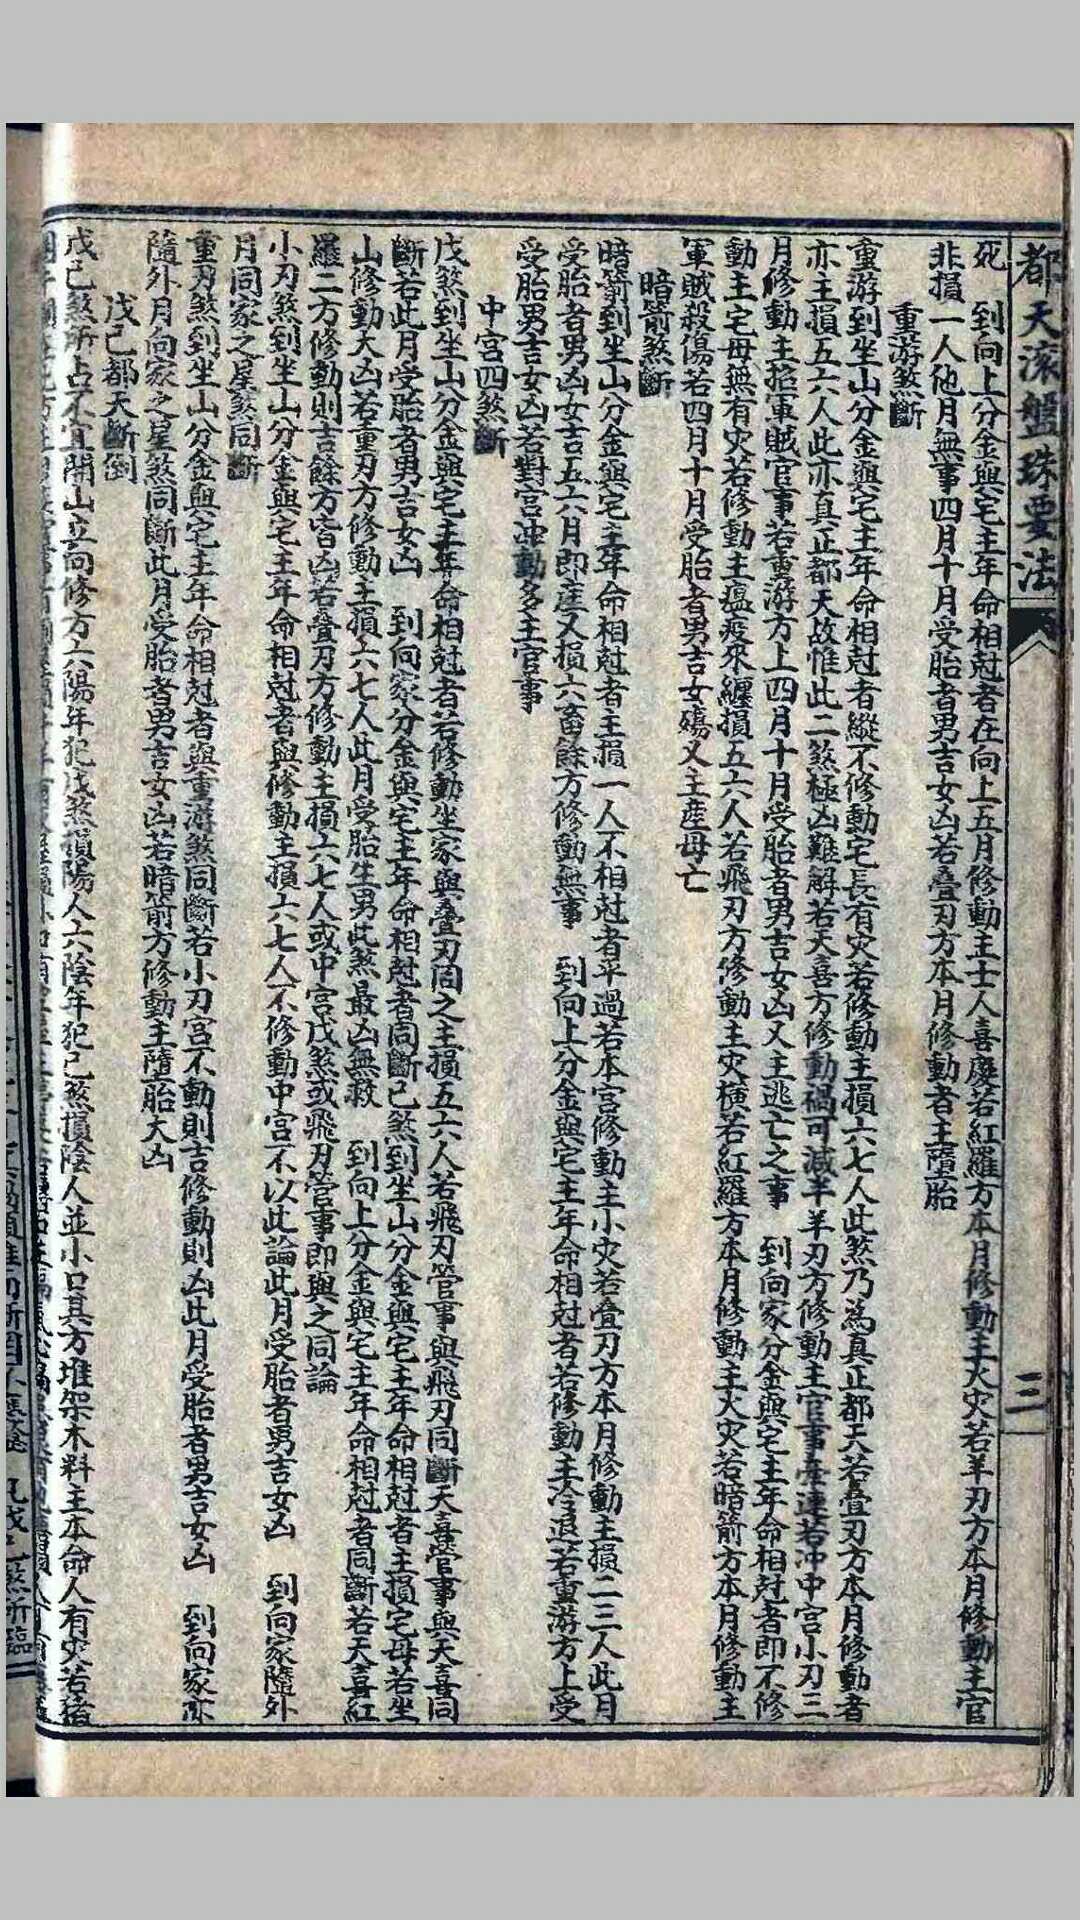 都天滚盤珠要法
三
死　到向上分金與宅主年命相尅者在向上五月修動主士人喜慶若紅羅方本月修動主火灾若羊刃方本月修動主官
非損一人他月無事四月十月受胎者男吉女凶若叠刃方本月修動者主墮胎
重游煞斷
重游到坐山分金與宅主年命相尅者縱不修動宅長有灾若修動主損六七人此煞乃為真正都天若叠刃方本月修動者
亦主損五六人此亦真正都天故惟此二煞極凶難解若天喜方修動禍可減半羊刃方修動主官事牽連若冲中宫小刃三
月修動主招軍賊官事若重游方上四月十月受胎者男吉女凶又主逃亡之事　到向家分金與宅主年命相尅者即不修
動主宅母無有灾若修動主瘟疫來纏損五六人若飛刃方修動主灾横若紅羅方本月修動主火灾若暗箭方本月修動主
軍賊殺傷若四月十月受胎者男吉女殤又主産母亡
暗箭煞斷
暗箭到坐山分金與宅主年命相尅者主損一人不相尅者平過若本宫修動主小灾若叠刃方本月修動主損二三人此月
受胎者男凶女吉五六月即産又損六畜餘方修動無事　到向上分金與宅主年命相尅者若修動主冷退若重游方上受
受胎男吉女凶若對宫冲動多主官事
中宫四煞斷
戊煞到坐山分金與宅主年命相尅者若修動坐家與叠刃同之主損五六人若飛刃管事與飛刃同斷天喜管事與天喜同
斷若此月受胎者男吉女凶　到向家分金與宅主年命相尅者同斷己煞到坐山分金與宅主年命相尅者主損宅母若坐
山修動大凶若重刃方修動主損六七人此月受胎生男此煞最凶無救　到向上分金與宅主年命相尅者同斷若天喜紅
羅二方修動則吉餘方皆凶若叠刃方修動主損六七人或中宫戊煞或飛刃管事即與之同論
小刃煞到坐山分金與宅主年命相尅者與修動主損六七人不修動中宫不以此論此月受胎者男吉女凶　到向家隨外
月同家之星煞同斷
重刃煞到坐山分金與宅主年命相尅者與重游煞同斷若小刃宫不動則吉修動則凶此月受胎者男吉女凶　到向家亦
隨外月向家之星煞同斷此月受胎者男吉女凶若暗箭方修動主墮胎大凶
戊己都天斷例
戊己煞所占不宜開山立向修方六陽年犯戊煞損陽人六陰年犯己煞損陰人並小口其方堆架木料主本命人有灾若豬